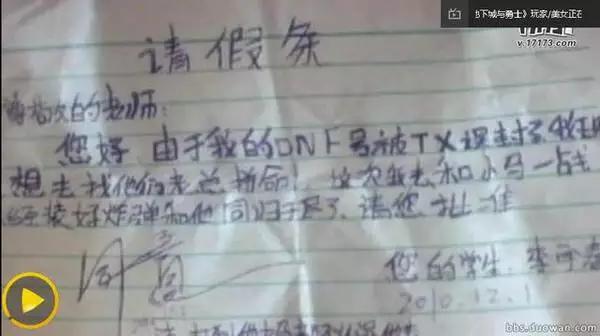 地下城与勇士》玩家/美女正在
v.17173.com
请假条
的老师：
您好 由于我的DNF号被TX误封了 我
想去找他们老总拼命！这次我去和小马一战
已经装好炸弹和他同归于尽了，请您批准
同意
您的学生：李
2010.12.1
bbs.duowan.com